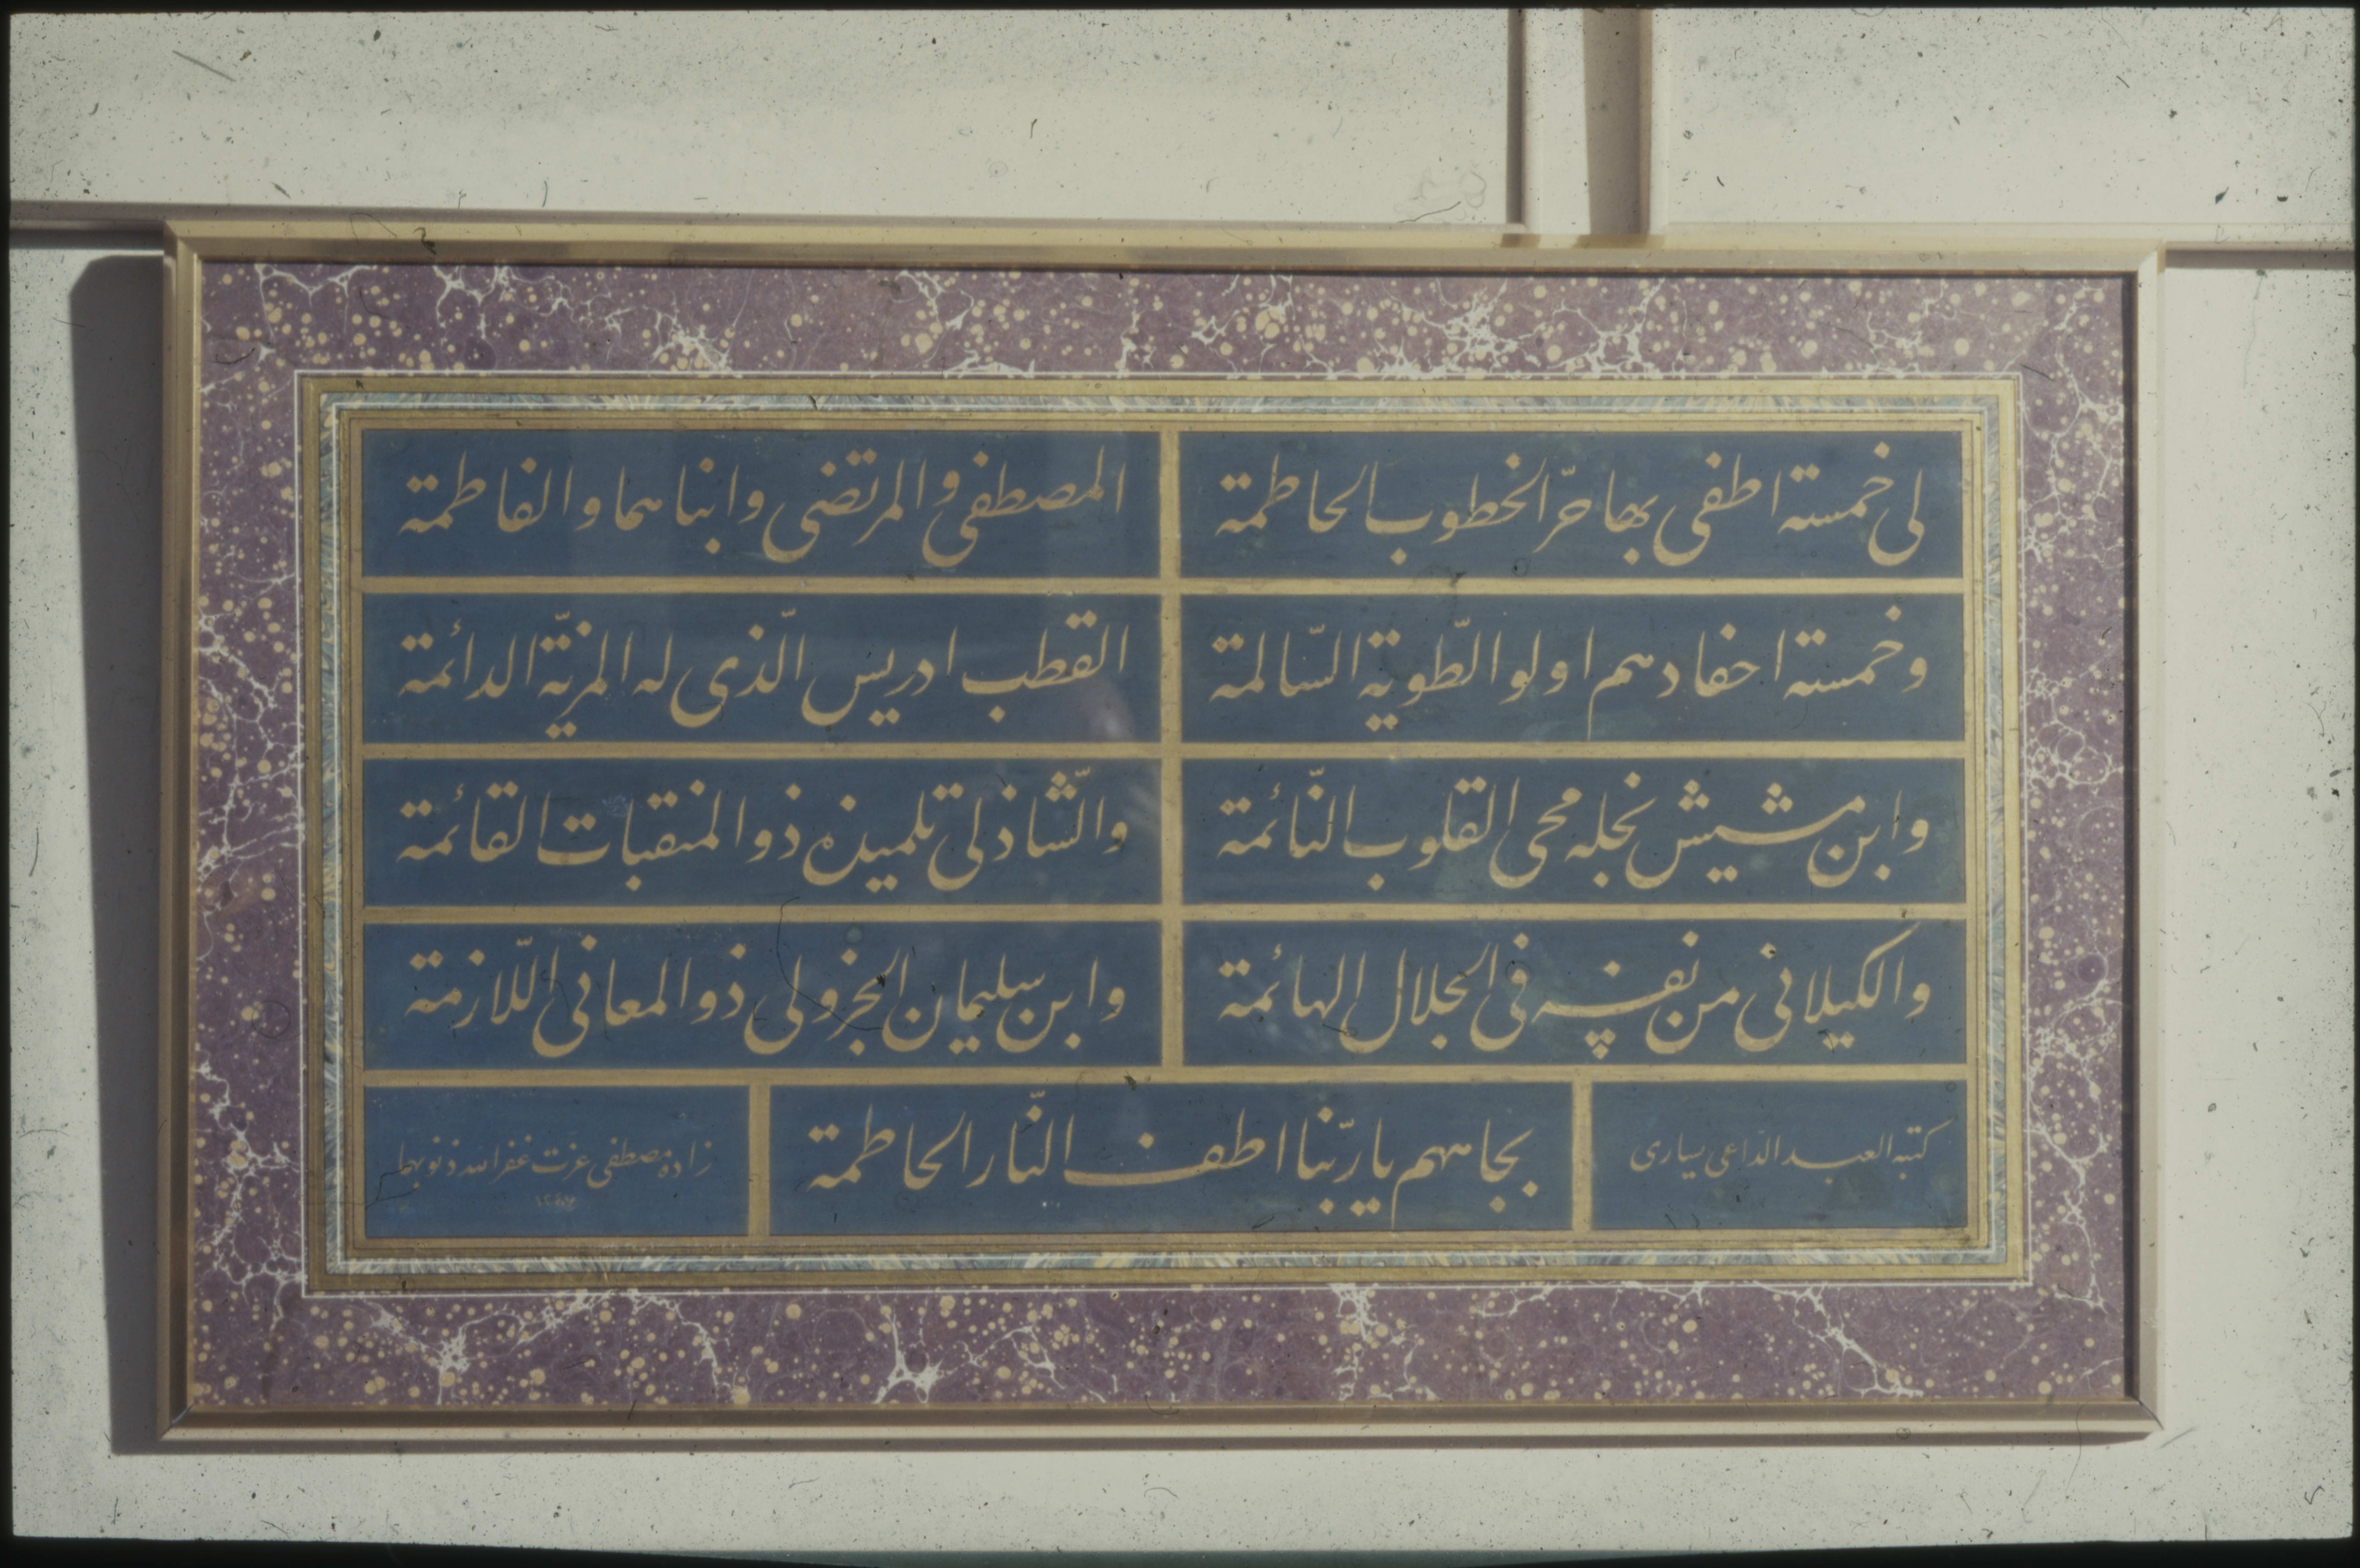 لی خمسة اطفی بها حرّ الخطوب الحاطمة
المصطفی و المرتضی و ابناهما و الفاطمة
و خمسة احفادهم اولو الطّویة السّالمة
القطب ادریس الّذی له المزیّة الدائمة
و ابن مشیش نجله محی القلوب النّائمة
و الشّاذلی تلمیذه ذو المنقبات القائمة
و الکیلانی من نفسه فی الجلال الهائمة
و ابن سلیمان الجزولی ذو المعانی اللّازمة
کتبه العبد الدّاعی یساری
بجاههم یا ربّنا اطف النّار الحاطمة
زاده مصطفی عزت غفر الله ذنوبهما